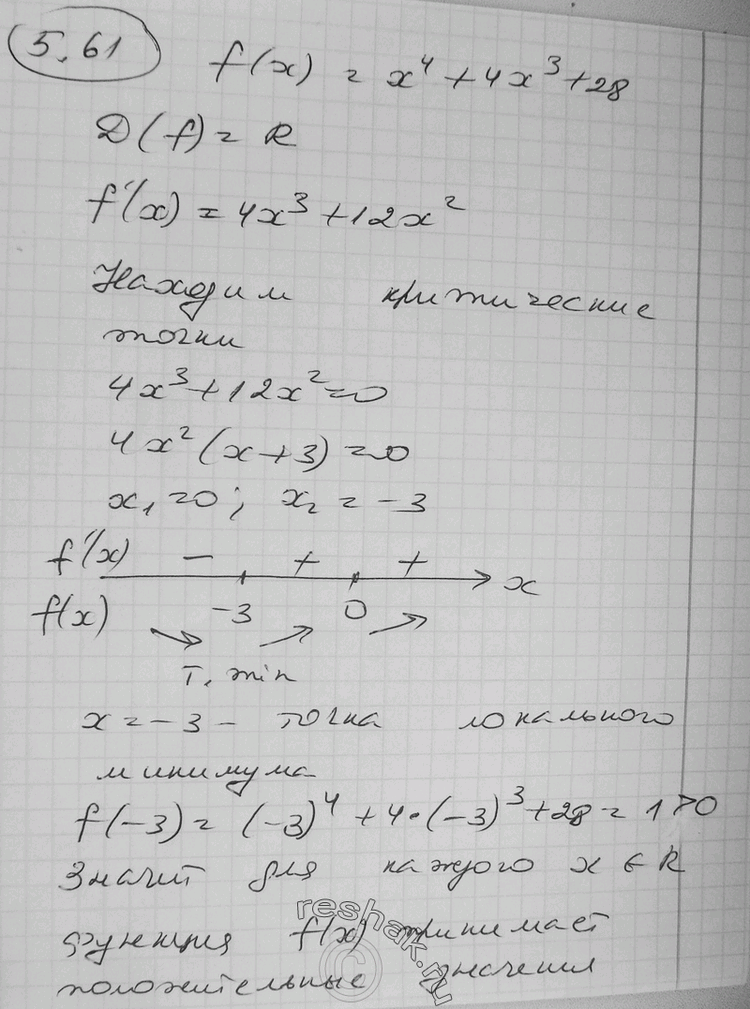 5.61
f(x) = x⁴ + 4x³ + 28
D(f) = R
f'(x) = 4x³ + 12x²
Находим критические
точки
4x³ + 12x² = 0
4x²(x + 3) = 0
x₁ = 0; x₂ = -3
f'(x) - + + x
f(x) -3 0
т. min
x = -3 - точка локального
минимума
f(-3) = (-3)⁴ + 4·(-3)³ + 28 = 1 > 0
Значит для каждого x ∈ R
функция f(x) принимает
положительные значения
reshak.ru
©